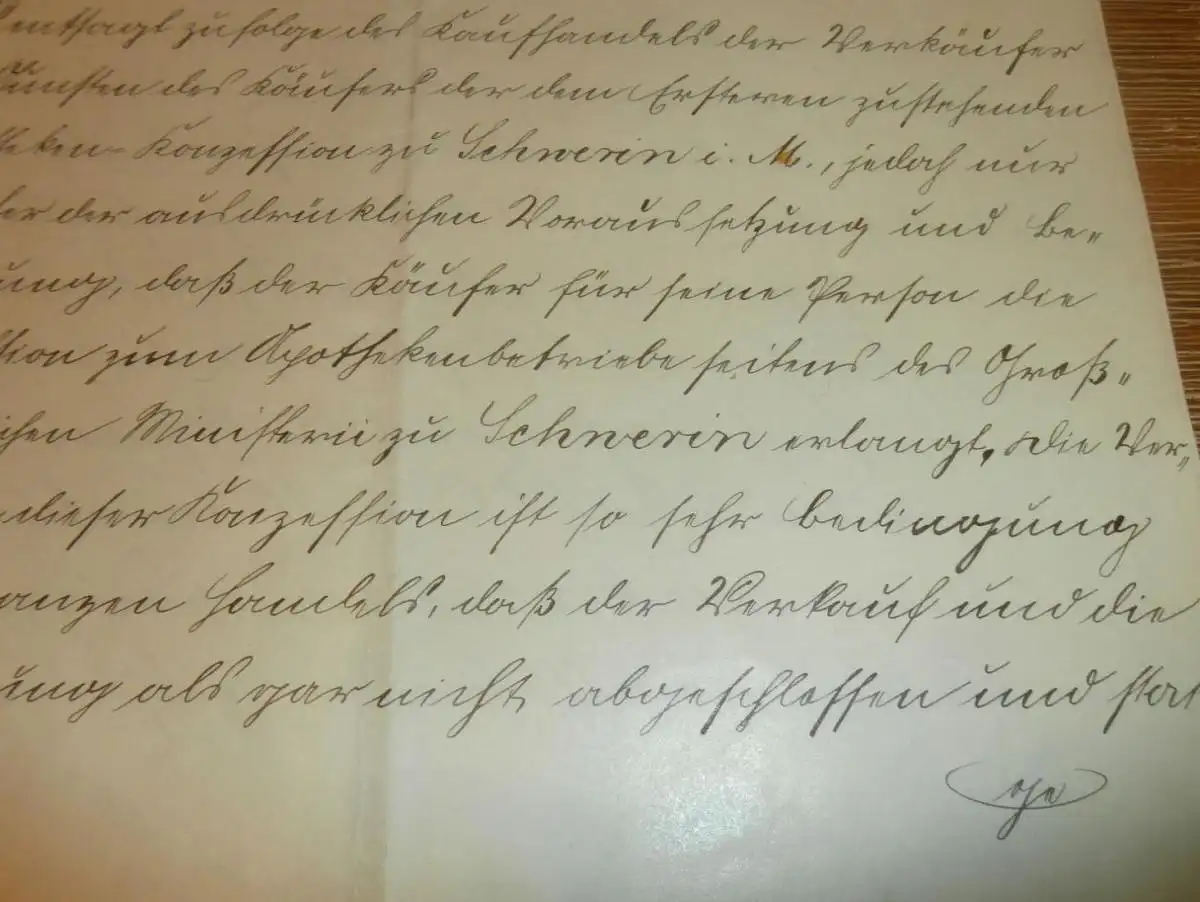 entsagt zufolge des Kaufhandels der Verkäufer
Gunsten des Käufers der dem Ersteren zustehenden
theken-Konzession zu Schwerin i. M., jedoch nur
ter der ausdrücklichen Voraussetzung und Be-
ung, daß der Käufer für seine Person die
ssion zum Apothekenbetriebe seitens des Groß-
ichen Ministerii zu Schwerin erlangt. Die Ver-
dieser Konzession ist so sehr Bedingung
anzen Handels, daß der Verkauf und die
ung als gar nicht abgeschlossen und stat
ge